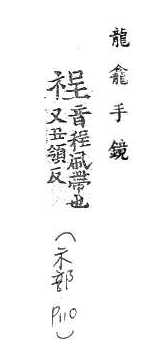 龍龕手鏡
䄇音程佩帶也
又丑領反
(示部P110)